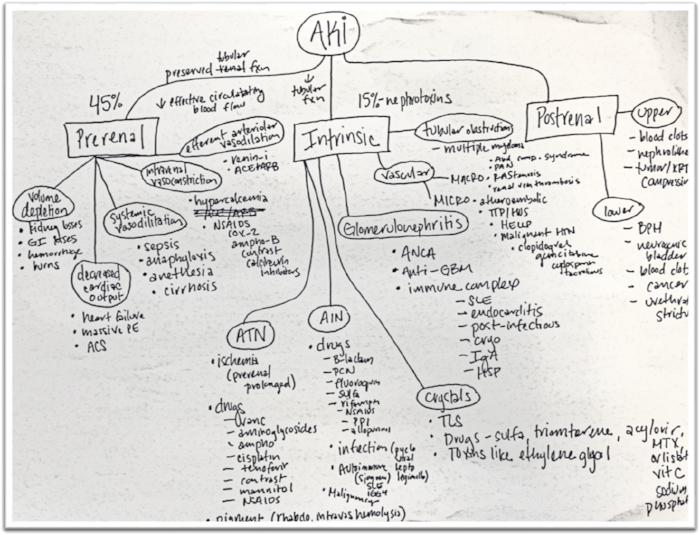 AKi
tubular
preserved renal fxn
↓ effective circulatory
blood flow
↓
tubular
fxn
45%
15% - nephrotoxins
Prerenal
Intrinsic
Postrenal
efferent arteriolar
vasodilation
- renin-i
- ACE+ARB
intrarenal
vasoconstriction
• hypercalcemia
• NSAIDS
COX-2
ampho-B
contrast
calcineurin
inhibitors
volume
depletion
• kidney losses
• GI losses
• hemorrhage
• burns
systemic
vasodilitation
• sepsis
• anaphylaxis
• anethesia
• cirrhosis
decreased
cardiac
output
• heart failure
• massive PE
• ACS
tubular obstruction
- multiple myeloma
vascular
MACRO
- Abd comp. syndrome
- PAN
- RAS stenosis
- renal vein thrombosis
MICRO
- atheroembolic
- TTP/HUS
• HELLP
• malignant HTN
• clopidogrel
gemcitabine
cyclosporine
tacrolimus
Glomerulonephritis
• ANCA
• Anti-GBM
• immune complex
- SLE
- endocarditis
- post-infectious
- cryo
- IgA
- HSP
ATN
• ischemia
(prerenal
prolonged)
• drugs
- vanc
- aminoglycosides
- ampho
- cisplatin
- tenofovir
- contrast
- mannitol
- NSAIDS
• pigment (rhabdo, intravas hemolysis)
AIN
• drugs
- B-lactam
- PCN
- fluoroquin
- sulfa
- rifampin
- NSAIDS
- PPI
- allopurinol
• infection (pyelo
viral
lepto
legionella)
• Autoimmune
(sjogrens)
SLE
IGG4
• Malignancy
crystals
• TLS
• Drugs - sulfa, triamterene, acyclovir,
MTX,
orlistat
vit C
sodium
phosphat
• Toxins like ethylene glycol
upper
- blood clots
- nephrolithe
- tumor/
compressio
lower
- BPH
- neurogenic
bladder
- blood clot
- cancer
- urethral
strictu